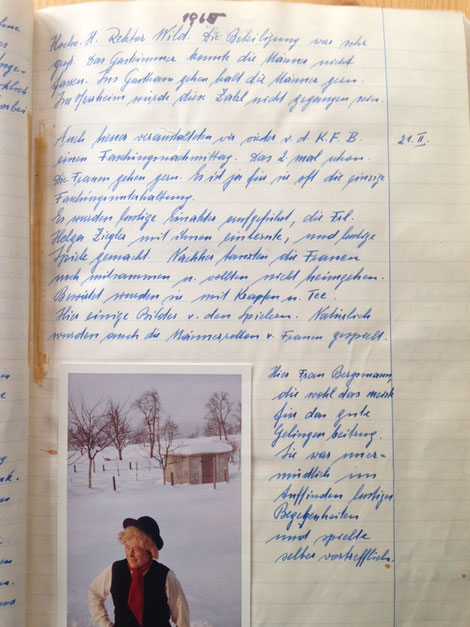 1965
Hochw. H. Rektor Wild. Die Beteiligung war sehr
groß. Das Gastzimmer konnte die Männer nicht
fassen. Ins Gasthaus gehen halt die Männer gern.
Ins Pfarrheim wurde diese Zahl nicht gegangen sein.
Auch heuer veranstalteten wir wieder v. d. K.F.B. 21. II.
einen Faschingsnachmittag. Das 2. mal schon.
Die Frauen gehen gern. Es ist ja für sie oft die einzige
Faschingsunterhaltung.
Es wurden lustige Einakter aufgeführt, die Frl.
Helga Ziegler mit ihnen einlernte, und lustige
Spiele gemacht. Nachher tanzten die Frauen
noch mitsammen u. wollten nicht heimgehen.
Bewirtet wurden sie mit Krapfen u. Tee.
Hier einige Bilder v. den Spielern. Natürlich
wurden auch die Männerrollen v. Frauen gespielt.
Hier Frau Bergsmann,
die wohl das meiste
für das gute
Gelingen beitrug.
Sie war uner-
müdlich im
Auffinden lustiger
Begebenheiten
und spielte
selber vortrefflich.